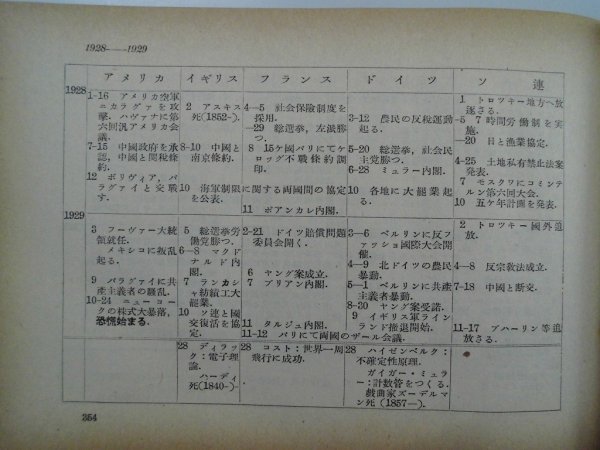 1928——1929
アメリカ
イギリス
フランス
ドイツ
ソ連
1928
1-16 アメリカ空軍
ニカラグァを攻
撃、ハヴァナに第
六回汎アメリカ会
議.
7-15 中国政府を承
認、中国と関税條
約.
12 ボリヴィア,パ
ラグァイと交戰
す.
2 アスキス
死(1852-).
8-10 中国と
南京條約.
10 海軍制限に関する両國間の協定
を公表.
4—5 社会保険制度を
採用.
—29 総選挙,左派勝
つ.
8 15ケ國パリにてケ
ロッグ不戰條約調
印.
11 ポアンカレ内閣.
3-12 農民の反税運動
起る.
5-20 総選挙,社会民
主党勝つ.
6-28 ミュラー内閣.
10 各地に大罷業起
る.
1 トロツキー地方へ放
逐さる.
-5 7時間労働制を実
施.
—20 日と漁業協定.
4-25 土地私有禁止法案
発表.
7 モスクワにコミンテ
ルン第六回大会.
10 五ケ年計画を発表.
1929
3 フーヴァー大統
領就任.
メキシコに叛乱
起る.
9 パラグァイに共
産主義者の騒乱.
10-24 ニューヨー
クの株式大暴落,
恐慌始まる.
5 総選挙労
働党勝つ.
6—8 マクド
ナルド内
閣.
7 ランカシ
ャ紡績工大
罷業.
10 ソ連と國
交復活を協
定.
2-21 ドイツ賠償問題
委員会開く.
6 ヤング案成立.
7 ブリアン内閣.
11 タルジュ内閣.
11-12 パリにて両國のザール会議.
3—6 ベルリンに反フ
ァッショ國際大会開
催.
4—9 北ドイツの農民
暴動.
5—1 ベルリンに共産
主義者暴動.
8-20 ヤング案受諾.
9 イギリス軍ライン
ランド撤退開始.
2 トロツキー國外追
放.
4—8 反宗敎法成立.
7-18 中国と断交.
11-17 ブハーリン等追
放さる.
28 ディラッ
ク:電子理
論.
ハーディ
死(1840-)
28 コスト:世界一周
飛行に成功.
28 ハイゼンベルク:
不確定性原理.
ガイガー・ミュラ
ー:計数管をつくる.
戯曲家ズーデルマ
ン死(1857—).
354